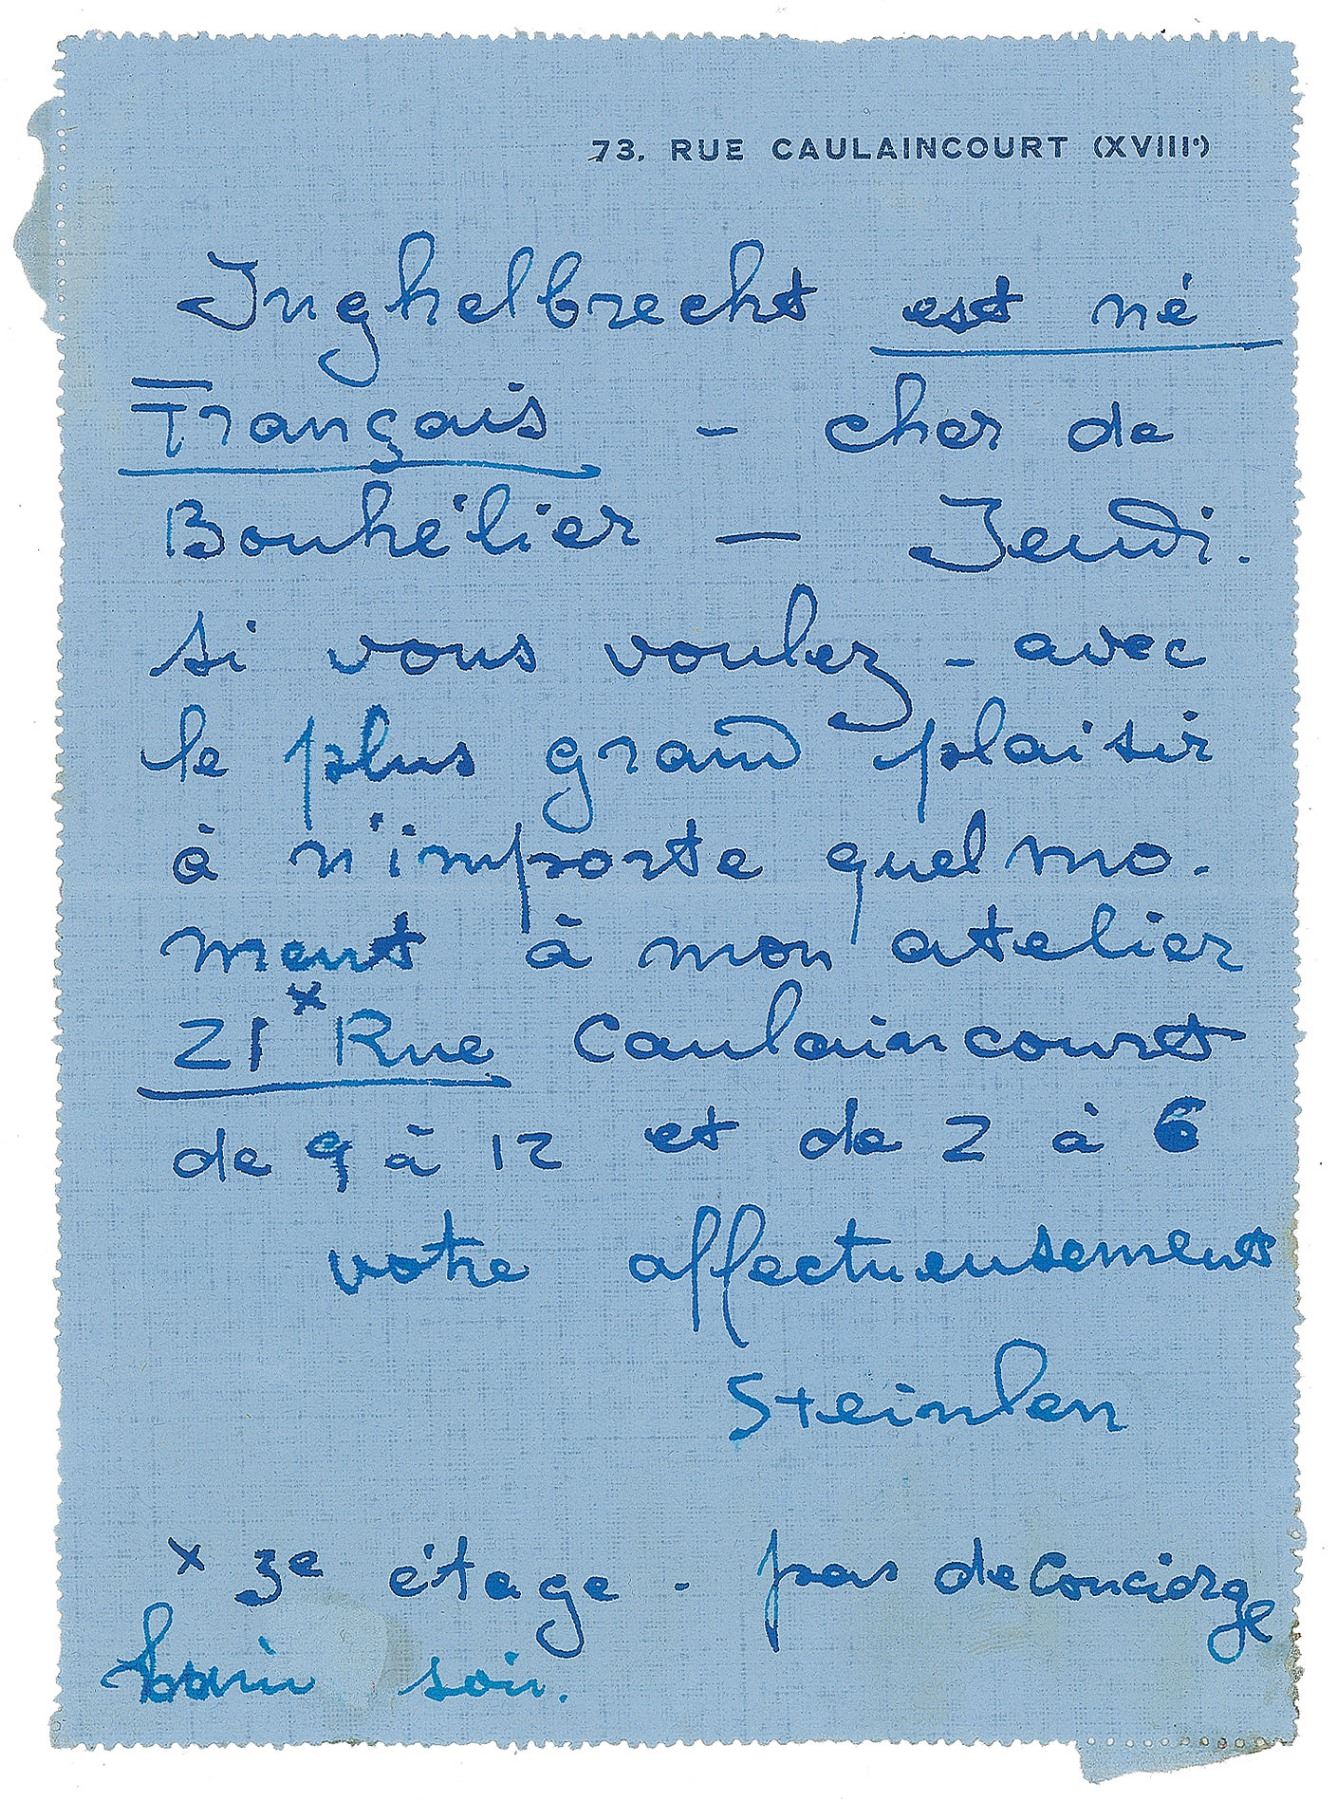 73, RUE CAULAINCOURT (XVIIIe)
Inghelbrecht est né
Français - cher de
Bouhélier — Jeudi.
si vous voulez - avec
le plus grand plaisir
à n'importe quel mo-
ment à mon atelier
21 x Rue Caulaincourt
de 9 à 12 et de 2 à 6
votre affectueusement
Steinlen
x 3e étage - pas de Concierge
soir.